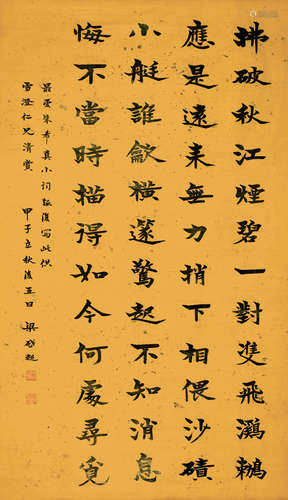 拂破秋江煙碧一對雙飛鸂鶒
應是遠来無力捎下相偎沙磧
小艇誰橫篴驚起不知消息
悔不當時描得如今何處尋覓
最愛朱希真小詞輒復寫此供
雪澄仁兄清賞 甲子立秋後五日 梁啟超